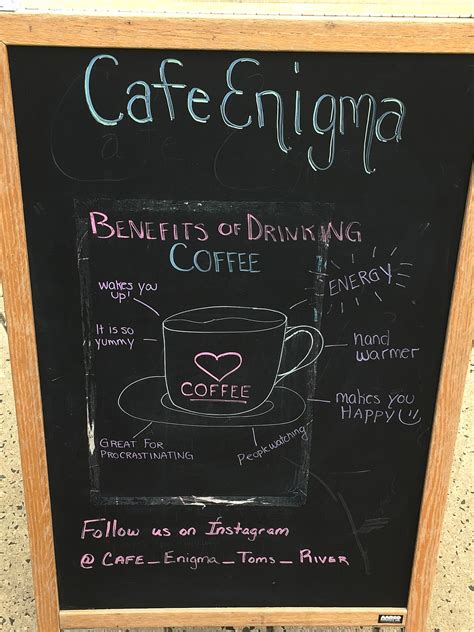 Cafe Enigma
BENEFITS OF DRINKING
COFFEE
wakes you
up!
ENERGY
It is so
yummy
hand
warmer
COFFEE
makes you
HAPPY
GREAT FOR
PROCRASTINATING
People watching
Follow us on Instagram
@ CAFE_Enigma_Toms_River